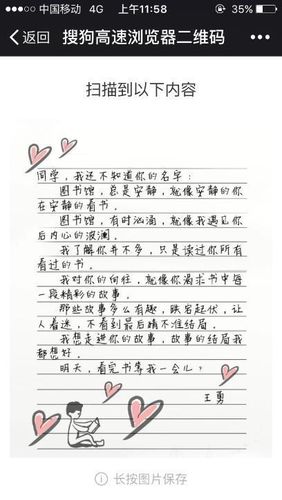 中国移动 4G 上午11:58 35%
返回 搜狗高速浏览器二维码
扫描到以下内容
同学，我还不知道你的名字：
图书馆，总是安静，就像安静的你
在安静的看书。
图书馆，有时汹涌，就像我遇见你
后内心的波澜。
我了解你并不多，只是读过你所有
看过的书。
我对你的向往，就像你渴求书中每
一段精彩的故事。
那些故事多么有趣，跌宕起伏，让
人着迷，不看到最后睛不准结局。
我想走进你的故事，故事的结局我
都想好。
明天，看完书等我一会儿？
王勇
长按图片保存